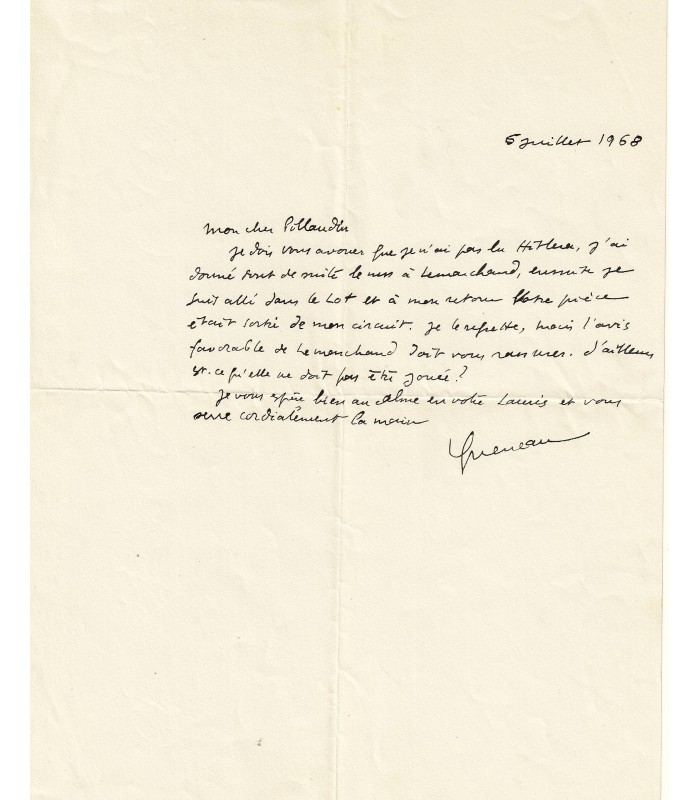 5 juillet 1968
Mon cher Pillaudin
je dois vous avouer que je n'ai pas lu Hitlera, j'ai
donné tout de suite le mss à Lemarchand, ensuite je
suis allé dans le Lot et à mon retour Votre pièce
était sortie de mon circuit. Je le regrette, mais l'avis
favorable de Lemarchand doit vous rassurer. D'ailleurs
est-ce qu'elle ne doit pas être jouée?
Je vous espère bien au calme en votre Lauris et vous
serre cordialement la main
Queneau